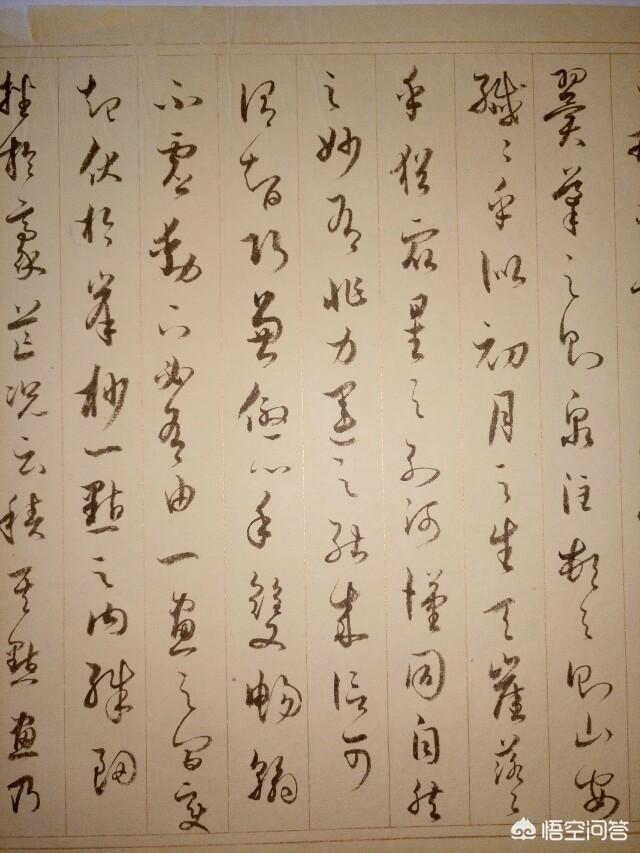 翼導之則泉注頓之則山安
纖〻乎似初月之生天崖落〻
乎猶衆星之列河漢同自然
之妙有非力運之能成信可
謂智巧兼優心手雙暢翰
不虛動下必有由一畫之間變
起伏於峯杪一點之內殊衄
挫於豪芒況云積其點畫乃
悟空问答